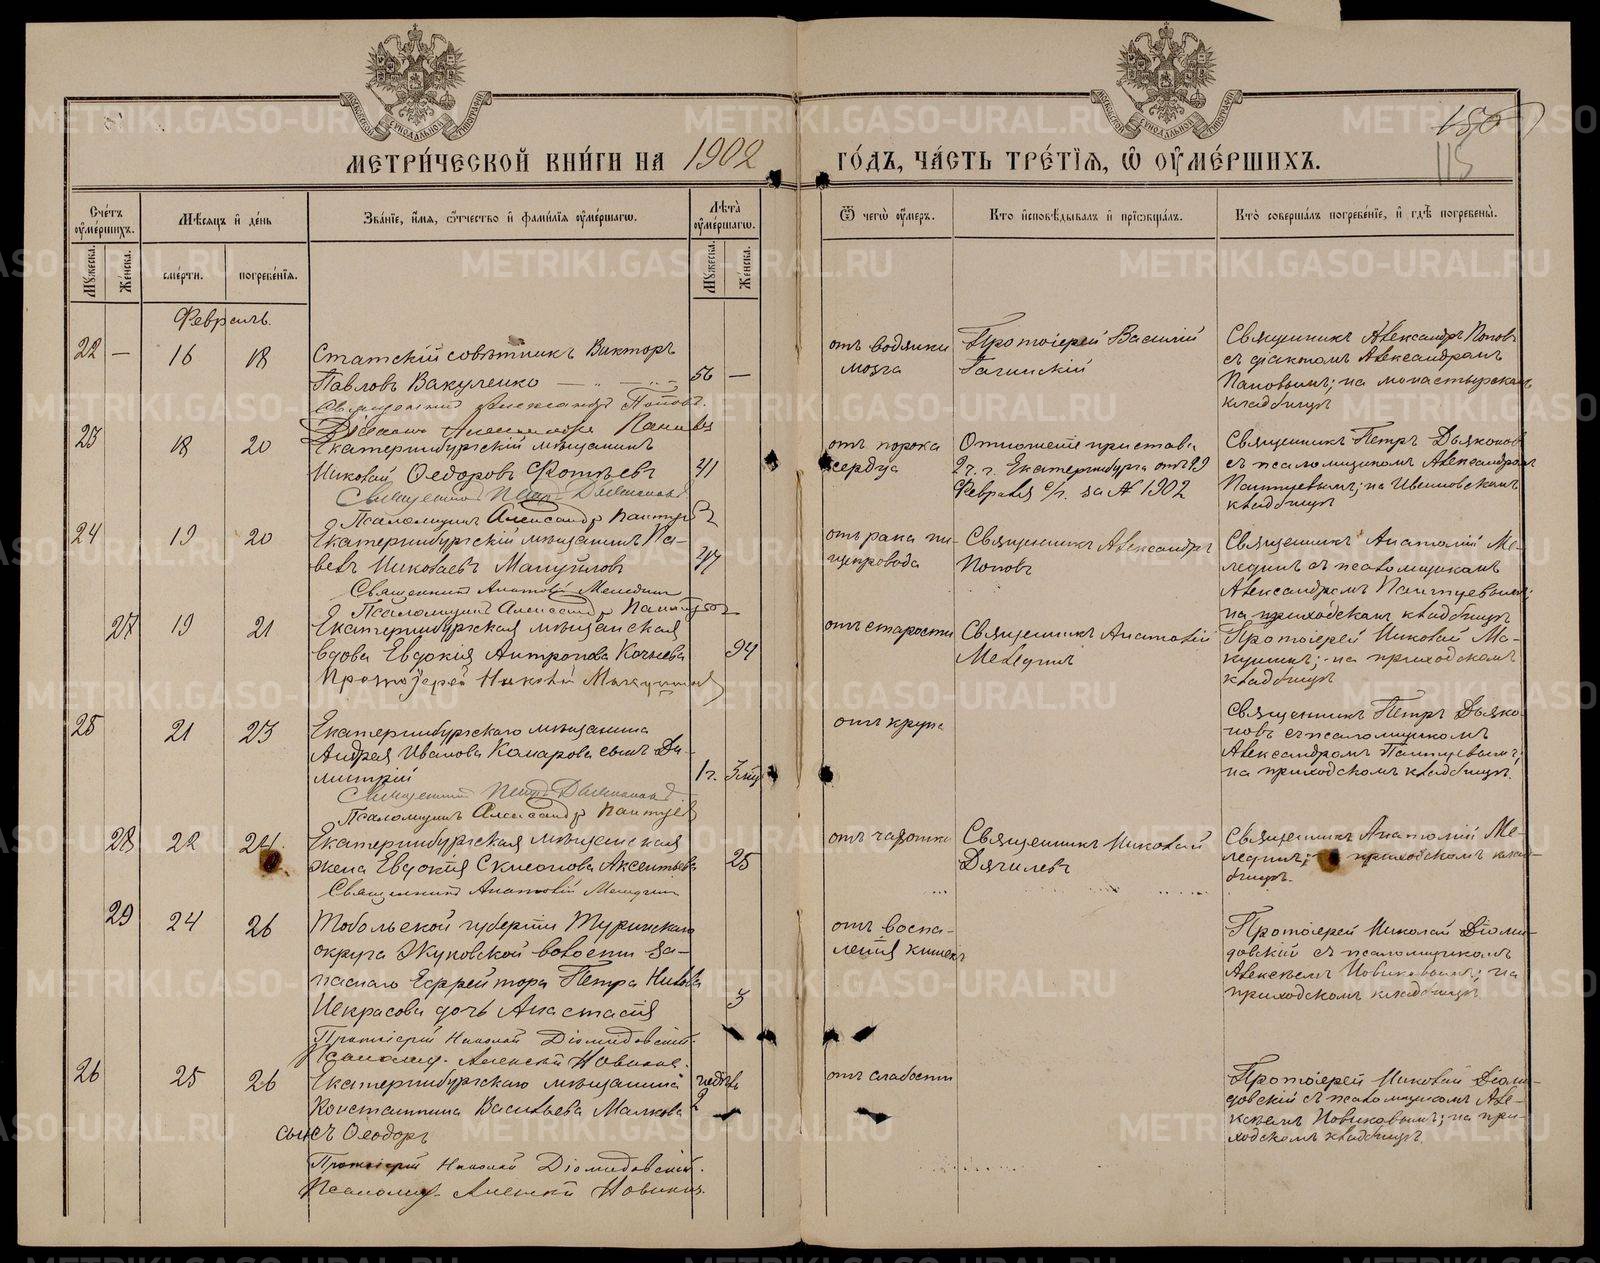 МЕТРИ́ЧЕСКОЙ КНИ́ГИ НА 1902 ГО́ДЪ, ЧА́СТЬ ТРЕ́ТІЯ, Ѡ ОУМЕ́РШИХЪ.
150
115
Сче́тъ оуме́ршихъ.
Мѣсяцъ и де́нь
Зва́ніе, и́мя, о́тчество и фами́лія оуме́ршагѡ.
Лѣта̀ оуме́ршагѡ.
Ѿ чегѡ̀ оу́меръ.
Кто̀ исповѣ́дывалъ и прїѡбща́лъ.
Кто̀ соверша́лъ погребе́ніе, и гдѣ̀ погребены̀.
Му́жеска.
Же́нска.
сме́рти.
погребе́нія.
Му́жеска.
Же́нска.
Февраль.
22 — 16 18
Статскій совѣтникъ Викторъ
Павловъ Вакуленко
56 —
Священникъ Александръ Поповъ.
отъ водянки
мозга
Протоіерей Василій
Священникъ Александръ Поповъ
съ діакономъ Александромъ
Пановымъ; на монастырскомъ
кладбищѣ
23 18 20
Екатеринбургскій мѣщанинъ
Николай Ѳедоровъ Фотѣевъ
41
Священникъ Петръ Дьяконовъ
Псаломщикъ Александръ Пантуевъ
отъ порока
сердца
Отношеніе пристава
2 ч. г. Екатеринбурга отъ 19
Февраля с/г. за № 1902
Священникъ Петръ Дьяконовъ
съ псаломщикомъ Александромъ
Пантуевымъ; на Ивановскомъ
кладбищѣ
24 19 20
Екатеринбургскій мѣщанинъ Па-
велъ Николаевъ Мануйловъ
47
Священникъ Анатолій Меледин
Псаломщикъ Александръ Пантуевъ
отъ рака пи-
щепровода
Священникъ Александръ
Поповъ
Священникъ Анатолій Ме-
лединъ съ псаломщикомъ
Александромъ Пантуевымъ;
на приходскомъ кладбищѣ
27 19 21
Екатеринбургская мѣщанская
вдова Евдокія Антропова Кочнева
94
Протоіерей Николай
отъ старости
Священникъ Анатолій
Мелединъ
Протоіерей Николай Ма-
кушинъ; на приходскомъ
кладбищѣ
25 21 23
Екатеринбургскаго мѣщанина
Андрея Иванова Комарова сынъ Ди-
митрій
1 г. 3 мѣ
Священникъ Петръ Дьяконовъ
Псаломщикъ Александръ Пантуевъ
отъ крупа
Священникъ Петръ Дьяко-
новъ съ псаломщикомъ
Александромъ Пантуевымъ;
на приходскомъ кладбищѣ.
28 22 24
Екатеринбургская мѣщанская
жена Евдокія Аксентьева
25
Священникъ Анатолій Меледин
отъ чахотки
Священникъ Николай
Дягилевъ
Священникъ Анатолій Ме-
лединъ; приходскомъ клад-
бищѣ.
29 24 26
Тобольской губерніи Туринскаго
округа Жуковской волости за-
паснаго Ефрейтора Петра
Некрасова дочь Анастасія
3
Протоіерей Николай Діомидовскій.
Псаломщ. Алексѣй Новиков.
отъ воспа-
ленія кишекъ
Протоіерей Николай Діоми-
довскій съ псаломщикомъ
Алексѣемъ Новиковымъ; на
приходскомъ кладбищѣ
26 25 26
Екатеринбургскаго мѣщанина
Константина Васильева Малкова
сынъ Ѳеодоръ
недѣли
2
Протоіерей Николай Діомидовскій.
Псаломщ. Алексѣй Новиков.
отъ слабости
Протоіерей Николай Діоми-
довскій съ псаломщикомъ Але-
ксѣемъ Новиковымъ; на при-
ходскомъ кладбищѣ.
METRIKI.GASO-URAL.RU